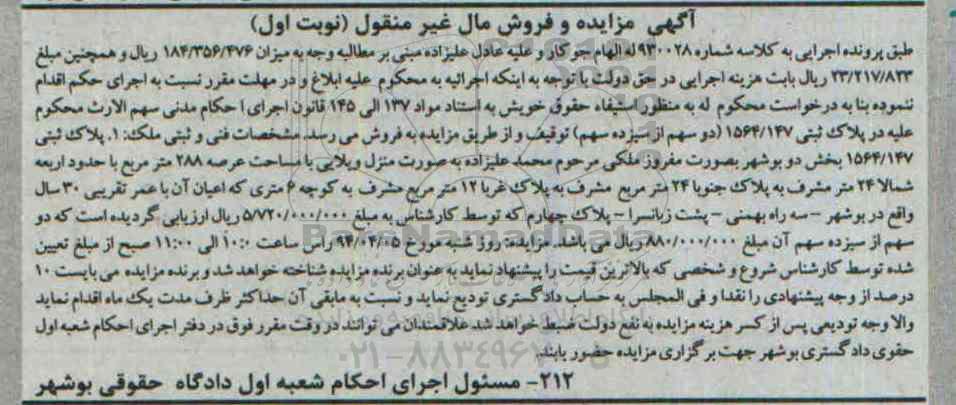 آگهی مزایده و فروش مال غیر منقول (نوبت اول)
طبق پرونده اجرایی به کلاسه شماره ۹۳۰۰۲۸ له الهام جوکار و علیه عادل علیزاده مبنی بر مطالبه وجه به میزان ۱۸۴/۳۵۶/۴۷۶ ریال و همچنین مبلغ
۲۳/۲۱۷/۸۲۳ ریال بابت هزینه اجرایی در حق دولت با توجه به اینکه اجرائیه به محکوم علیه ابلاغ و در مهلت مقرر نسبت به اجرای حکم اقدام
ننموده بنا به درخواست محکوم له به منظور استیفاء حقوق خویش به استناد مواد ۱۳۷ الی ۱۴۵ قانون اجرای احکام مدنی سهم الارث محکوم
علیه در پلاک ثبتی ۱۵۶۴/۱۴۷ (دو سهم از سیزده سهم) توقیف و از طریق مزایده به فروش می رسد. مشخصات فنی و ثبتی ملک: ۱. پلاک ثبتی
۱۵۶۴/۱۴۷ بخش دو بوشهر بصورت مفروز ملکی مرحوم محمد علیزاده به صورت منزل ویلایی با مساحت عرصه ۲۸۸ متر مربع با حدود اربعه
شمالا ۲۴ متر مشرف به پلاک جنوبا ۲۴ متر مربع مشرف به پلاک غربا ۱۲ متر مربع مشرف به کوچه ۶ متری که اعیان آن با عمر تقریبی ۳۰ سال
واقع در بوشهر – سه راه بهمنی – پشت زبانسرا – پلاک چهارم که توسط کارشناس به مبلغ ۵/۷۲۰/۰۰۰/۰۰۰ ریال ارزیابی گردیده است که دو
سهم از سیزده سهم آن مبلغ ۸۸۰/۰۰۰/۰۰۰ ریال می باشد. مزایده: روز شنبه مورخ ۹۴/۰۴/۰۵ راس ساعت ۱۰:۰۰ الی ۱۱:۰۰ صبح از مبلغ تعیین
شده توسط کارشناس شروع و شخصی که بالاترین قیمت را پیشنهاد نماید به عنوان برنده مزایده شناخته خواهد شد و برنده مزایده می بایست ۱۰
درصد از وجه پیشنهادی را نقدا و فی المجلس به حساب دادگستری تودیع نماید و نسبت به مابقی آن حداکثر ظرف مدت یک ماه اقدام نماید
والا وجه تودیعی پس از کسر هزینه مزایده به نفع دولت ضبط خواهد شد علاقمندان می توانند در وقت مقرر فوق در دفتر اجرای احکام شعبه اول
حقوی دادگستری بوشهر جهت برگزاری مزایده حضور یابند.
۲۱۲- مسئول اجرای احکام شعبه اول دادگاه حقوقی بوشهر
BaraNamadData